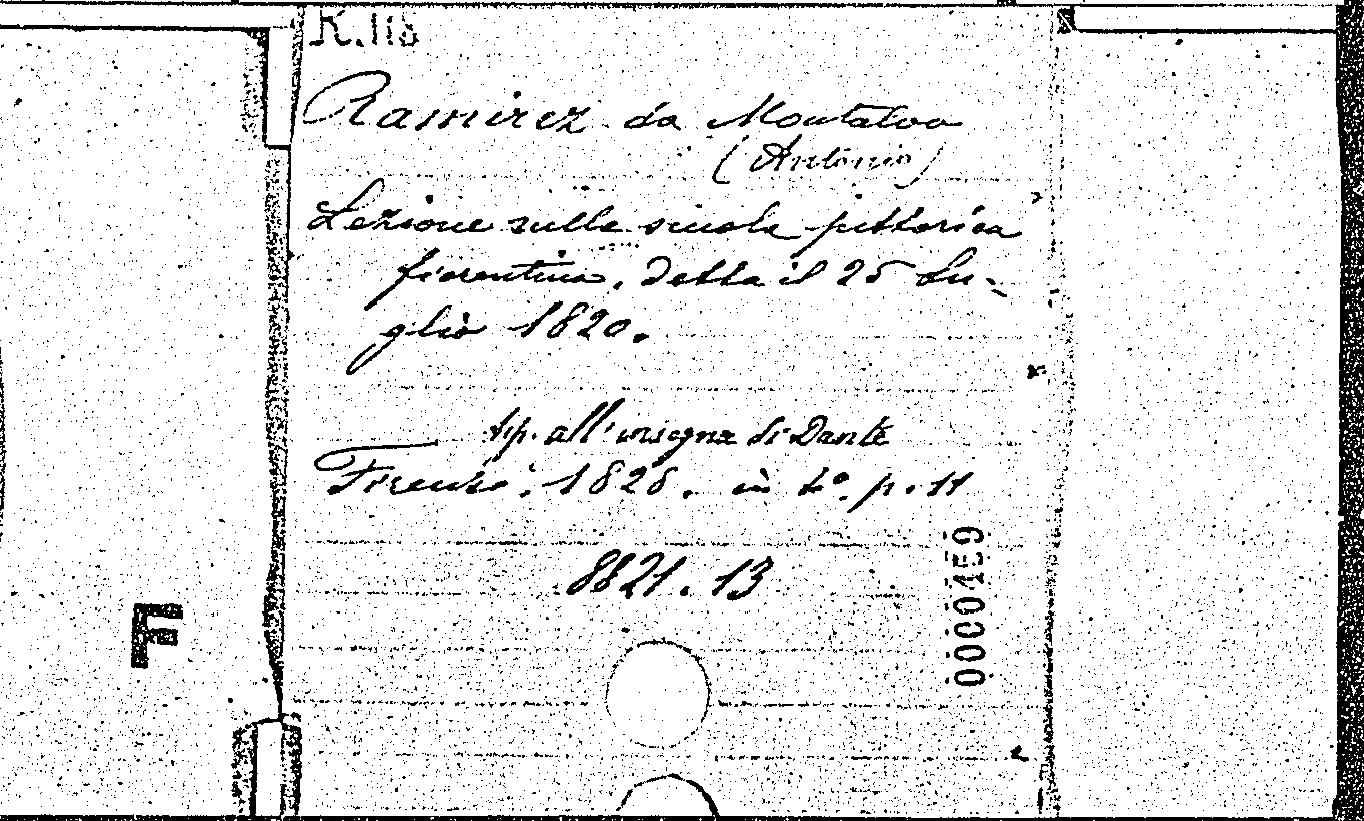 K.118
Ramirez da Montalvo
(Antonio)
Lezione sulla scuola pittorica
fiorentina, detta il 25 Lu-
glio 1820.
tip. all'insegna di Dante
Firenze, 1828. in 4º. p. 11
8821.13
0000459
F